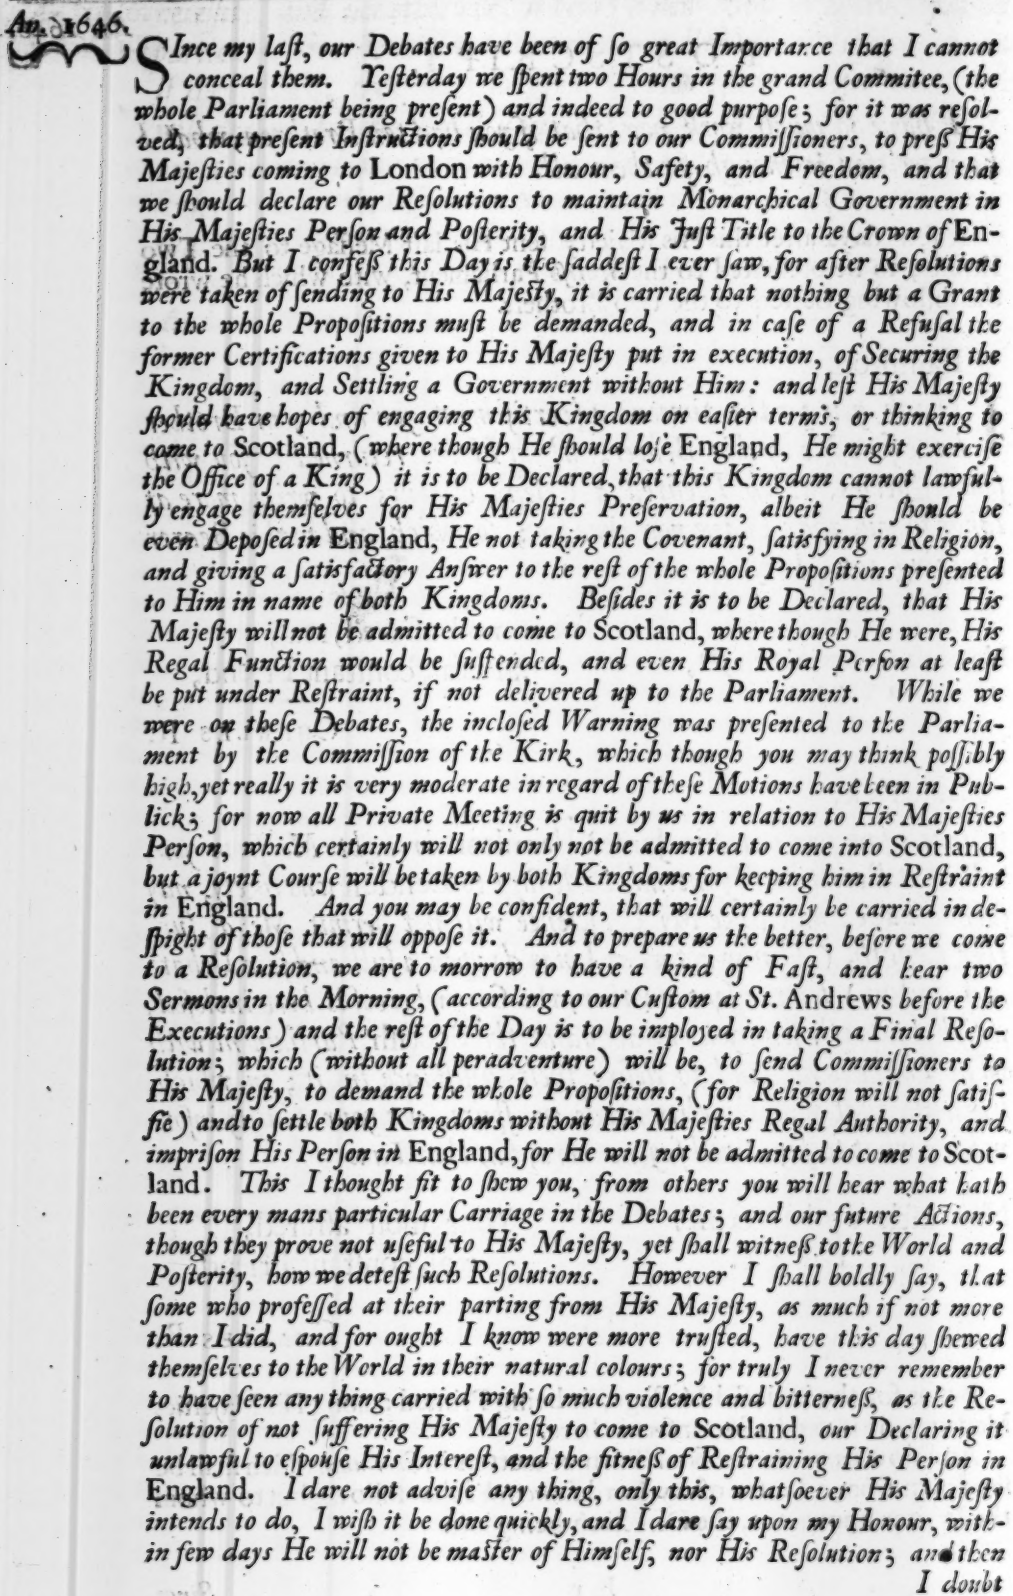 An. 1646.
SInce my laſt, our Debates have been of ſo great Importance that I cannot
conceal them. Yeſterday we ſpent two Hours in the grand Commitee, (the
whole Parliament being preſent) and indeed to good purpoſe; for it was reſol-
ved, that preſent Inſtructions ſhould be ſent to our Commiſſioners, to preſs His
Majeſties coming to London with Honour, Safety, and Freedom, and that
we ſhould declare our Reſolutions to maintain Monarchical Government in
His Majeſties Perſon and Poſterity, and His Juſt Title to the Crown of En-
gland. But I confeſs this Day is the ſaddeſt I ever ſaw, for after Reſolutions
were taken of ſending to His Majeſty, it is carried that nothing but a Grant
to the whole Propoſitions muſt be demanded, and in caſe of a Refuſal the
former Certifications given to His Majeſty put in execution, of Securing the
Kingdom, and Settling a Government without Him: and leſt His Majeſty
ſhould have hopes of engaging this Kingdom on eaſier terms, or thinking to
come to Scotland, (where though He ſhould loſe England, He might exerciſe
the Office of a King) it is to be Declared, that this Kingdom cannot lawful-
ly engage themſelves for His Majeſties Preſervation, albeit He ſhould be
even Depoſed in England, He not taking the Covenant, ſatisfying in Religion,
and giving a ſatisfactory Anſwer to the reſt of the whole Propoſitions preſented
to Him in name of both Kingdoms. Beſides it is to be Declared, that His
Majeſty will not be admitted to come to Scotland, where though He were, His
Regal Function would be ſuſpended, and even His Royal Perſon at leaſt
be put under Reſtraint, if not delivered up to the Parliament. While we
were on theſe Debates, the incloſed Warning was preſented to the Parlia-
ment by the Commiſſion of the Kirk, which though you may think poſſibly
high, yet really it is very moderate in regard of theſe Motions have been in Pub-
lick; for now all Private Meeting is quit by us in relation to His Majeſties
Perſon, which certainly will not only not be admitted to come into Scotland,
but a joynt Courſe will be taken by both Kingdoms for keeping him in Reſtraint
in England. And you may be confident, that will certainly be carried in de-
ſpight of thoſe that will oppoſe it. And to prepare us the better, before we come
to a Reſolution, we are to morrow to have a kind of Faſt, and hear two
Sermons in the Morning, (according to our Cuſtom at St. Andrews before the
Executions) and the reſt of the Day is to be imployed in taking a Final Reſo-
lution; which (without all peradventure) will be, to ſend Commiſſioners to
His Majeſty, to demand the whole Propoſitions, (for Religion will not ſatiſ-
fie) and to ſettle both Kingdoms without His Majeſties Regal Authority, and
impriſon His Perſon in England, for He will not be admitted to come to Scot-
land. This I thought fit to ſhew you, from others you will hear what hath
been every mans particular Carriage in the Debates; and our future Actions,
though they prove not uſeful to His Majeſty, yet ſhall witneſs to the World and
Poſterity, how we deteſt ſuch Reſolutions. However I ſhall boldly ſay, that
ſome who profeſſed at their parting from His Majeſty, as much if not more
than I did, and for ought I know were more truſted, have this day ſhewed
themſelves to the World in their natural colours; for truly I never remember
to have ſeen any thing carried with ſo much violence and bitterneſs, as the Re-
ſolution of not ſuffering His Majeſty to come to Scotland, our Declaring it
unlawful to eſpouſe His Intereſt, and the fitneſs of Reſtraining His Perſon in
England. I dare not adviſe any thing, only this, whatſoever His Majeſty
intends to do, I wiſh it be done quickly, and I dare ſay upon my Honour, with-
in few days He will not be maſter of Himſelf, nor His Reſolution; and then
I doubt